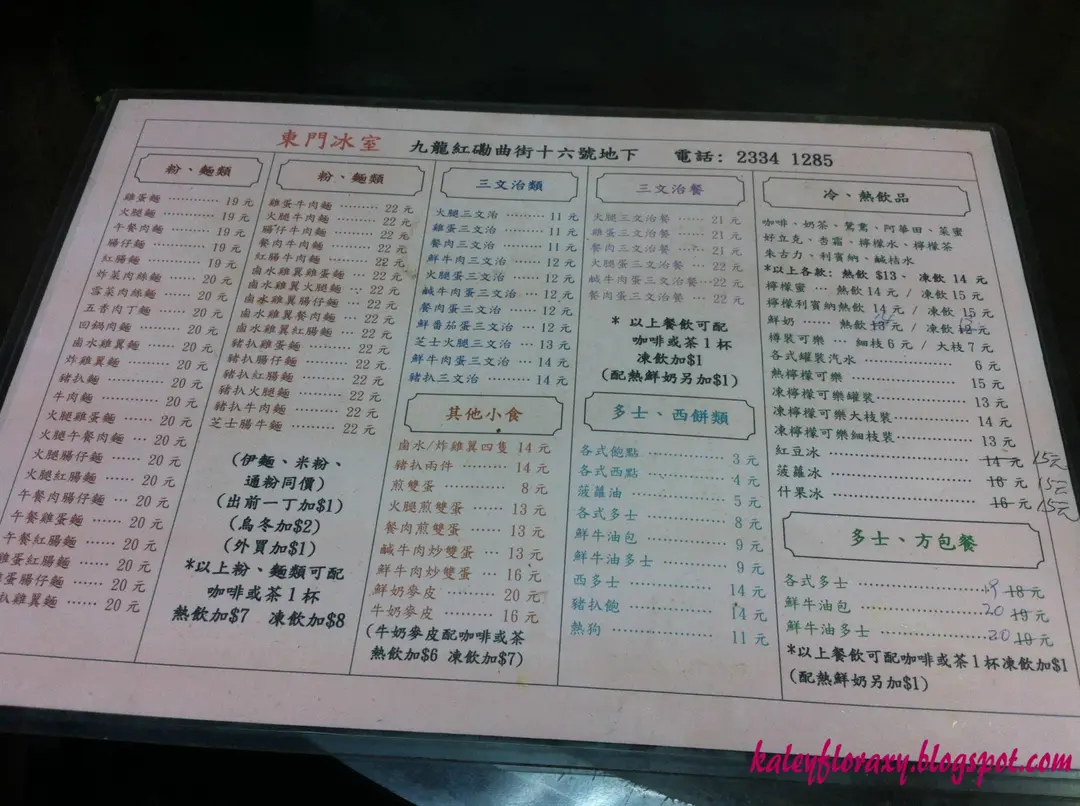 東門冰室 九龍紅磡曲街十六號地下 電話: 2334 1285
粉、麵類
雞蛋麵 ……… 19 元
火腿麵 ……… 19 元
午餐肉麵 ……… 19 元
腸仔麵 ……… 19 元
紅腸麵 ……… 19 元
炸菜肉絲麵 …… 20 元
雪菜肉絲麵 …… 20 元
五香肉丁麵 …… 20 元
回鍋肉麵 ……… 20 元
鹵水雞翼麵 …… 20 元
炸雞翼麵 ……… 20 元
豬扒麵 ……… 20 元
牛肉麵 ……… 20 元
火腿雞蛋麵 …… 20 元
火腿午餐肉麵 … 20 元
火腿腸仔麵 …… 20 元
火腿紅腸麵 …… 20 元
午餐肉腸仔麵 … 20 元
午餐雞蛋麵 …… 20 元
午餐紅腸麵 …… 20 元
雞蛋紅腸麵 …… 20 元
蛋腸仔麵 …… 20 元
扒雞翼麵 …… 20 元
粉、麵類
雞蛋牛肉麵 ……… 22 元
火腿牛肉麵 ……… 22 元
腸仔牛肉麵 ……… 22 元
餐肉牛肉麵 ……… 22 元
紅腸牛肉麵 ……… 22 元
鹵水雞翼雞蛋麵 … 22 元
鹵水雞翼火腿麵 … 22 元
鹵水雞翼腸仔麵 … 22 元
鹵水雞翼餐肉麵 … 22 元
鹵水雞翼紅腸麵 … 22 元
豬扒雞蛋麵 ……… 22 元
豬扒腸仔麵 ……… 22 元
豬扒紅腸麵 ……… 22 元
豬扒火腿麵 ……… 22 元
豬扒牛肉麵 ……… 22 元
芝士腸牛麵 ……… 22 元
(伊麵、米粉、
通粉同價)
(出前一丁加$1)
(烏冬加$2)
(外買加$1)
*以上粉、麵類可配
咖啡或茶1杯
熱飲加$7 凍飲加$8
三文治類
火腿三文治 ……… 11 元
雞蛋三文治 ……… 11 元
餐肉三文治 ……… 11 元
鮮牛肉三文治 …… 12 元
火腿蛋三文治 …… 12 元
鹹牛肉蛋三文治 … 12 元
餐肉蛋三文治 …… 12 元
鮮番茄蛋三文治 … 12 元
芝士火腿三文治 … 13 元
鮮牛肉蛋三文治 … 14 元
豬扒三文治 ……… 14 元
其他小食
鹵水/炸雞翼四隻 14 元
豬扒兩件 ……… 14 元
煎雙蛋 ……… 8 元
火腿煎雙蛋 …… 13 元
餐肉煎雙蛋 …… 13 元
鹹牛肉炒雙蛋 … 13 元
鮮牛肉炒雙蛋 … 16 元
鮮奶麥皮 ……… 20 元
牛奶麥皮 ……… 16 元
(牛奶麥皮配咖啡或茶
熱飲加$6 凍飲加$7)
三文治餐
火腿三文治餐 …… 21 元
雞蛋三文治餐 …… 21 元
餐肉三文治餐 …… 21 元
火腿蛋三文治餐 … 22 元
鹹牛肉蛋三文治餐…22 元
餐肉蛋三文治餐 … 22 元
* 以上餐飲可配
咖啡或茶1杯
凍飲加$1
(配熱鮮奶另加$1)
多士、西餅類
各式飽點 ……… 3 元
各式西點 ……… 4 元
菠蘿油 ……… 5 元
各式多士 ……… 8 元
鮮牛油包 ……… 9 元
鮮牛油多士 ……… 9 元
西多士 ……… 14 元
豬扒飽 ……… 14 元
熱狗 ……… 11 元
冷、熱飲品
咖啡、奶茶、鴛鴦、阿華田、菜蜜
好立克、杏霜、檸檬水、檸檬茶
朱古力、利賓納、鹹桔水
*以上各款: 熱飲 $13、凍飲 14 元
檸檬蜜 … 熱飲 14 元 / 凍飲 15 元
檸檬利賓納熱飲 14 元 / 凍飲 15 元
鮮奶 …… 熱飲 元 / 凍飲 元
樽裝可樂 … 細枝 6 元 / 大枝 7 元
各式罐裝汽水 ……… 6 元
熱檸檬可樂 ……… 15 元
凍檸檬可樂罐裝 ……… 13 元
凍檸檬可樂大枝裝 ……… 14 元
凍檸檬可樂細枝裝 ……… 13 元
紅豆冰 ……… 14 元 15元
菠蘿冰 ……… 16 元 15元
什果冰 ……… 16 元 15元
多士、方包餐
各式多士 ……… 18 元
鮮牛油包 ……… 20 19 元
鮮牛油多士 ……… 20 19 元
*以上餐飲可配咖啡或茶1杯凍飲加$1
(配熱鮮奶另加$1)
kaleyfloraxy.blogspot.com